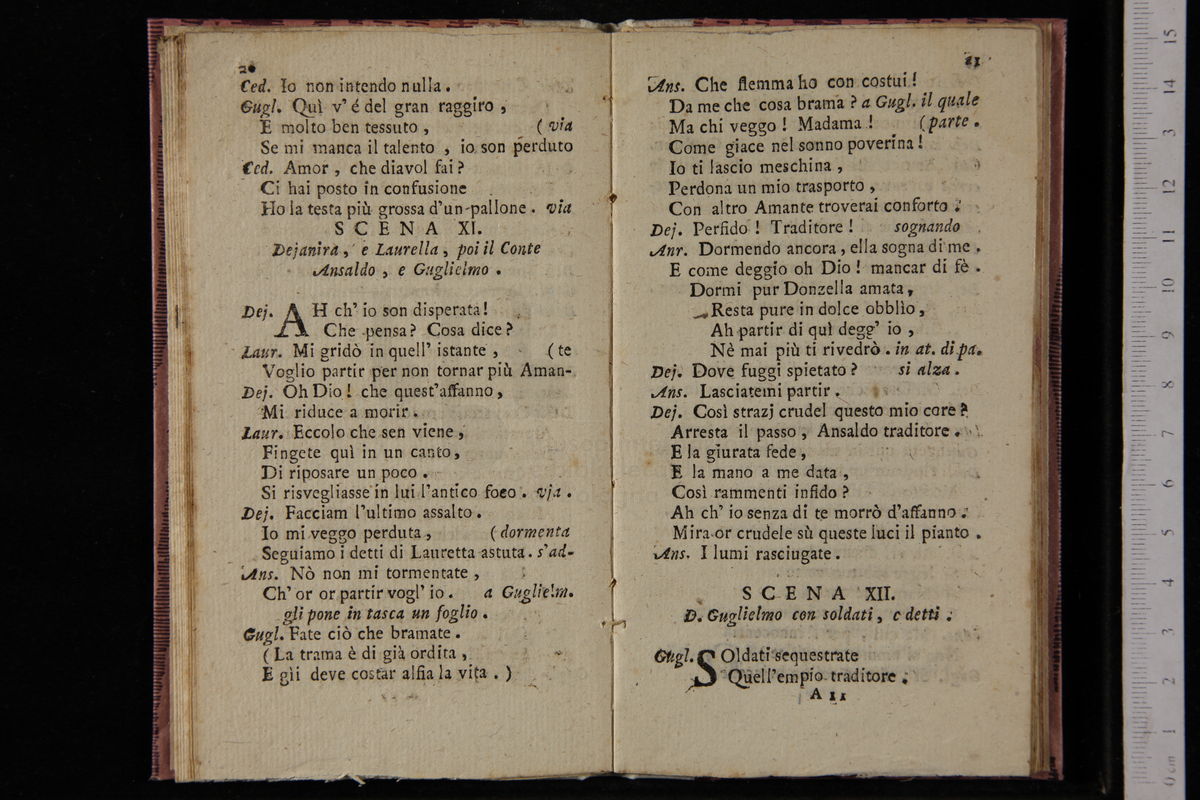 20
Ced. Io non intendo nulla.
Gugl. Quì v'é del gran raggiro,
E molto ben tessuto, (via
Se mi manca il talento, io son perduto
Ced. Amor, che diavol fai?
Ci hai posto in confusione
Ho la testa più grossa d'un-pallone. via
SCENA XI.
Dejanira, e Laurella, poi il Conte
Ansaldo, e Guglielmo.
Dej. AH ch'io son disperata!
Che pensa? Cosa dice?
Laur. Mi gridò in quell' istante, (te
Voglio partir per non tornar più Aman-
Dej. Oh Dio! che quest'affanno,
Mi riduce a morir.
Laur. Eccolo che sen viene,
Fingete quì in un canto,
Di riposare un poco.
Si risvegliasse in lui l'antico foco. via.
Dej. Facciam l'ultimo assalto.
Io mi veggo perduta, (dormenta
Seguiamo i detti di Lauretta astuta. s'ad-
Ans. Nò non mi tormentate,
Ch' or or partir vogl' io. a Guglielm.
gli pone in tasca un foglio.
Gugl. Fate ciò che bramate.
(La trama è di già ordita,
E gli deve costar alfia la vita.)
21
Ans. Che flemma ho con costui!
Da me che cosa brama? a Gugl. il quale
Ma chi veggo! Madama! (parte.
Come giace nel sonno poverina!
Io ti lascio meschina,
Perdona un mio trasporto,
Con altro Amante troverai conforto.
Dej. Perfido! Traditore! sognando
Anr. Dormendo ancora, ella sogna di me.
E come deggio oh Dio! mancar di fè.
Dormi pur Donzella amata,
Resta pure in dolce obblìo,
Ah partir di quì degg' io,
Nè mai più ti rivedrò. in at. di pa.
Dej. Dove fuggi spietato? si alza.
Ans. Lasciatemi partir.
Dej. Così strazj crudel questo mio core?
Arresta il passo, Ansaldo traditore.
E la giurata fede,
E la mano a me data,
Così rammenti infido?
Ah ch' io senza di te morrò d'affanno.
Mira or crudele sù queste luci il pianto.
Ans. I lumi rasciugate.
SCENA XII.
D. Guglielmo con soldati, e detti.
Gugl. SOldati sequestrate
Quell'empio traditore.
A 11